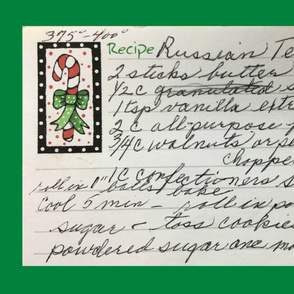 375°-400°
Recipe Russian Te
2 sticks butter
1/2 c granulated s
1 tsp vanilla extr
2 c all-purpose
3/4 c walnuts or pe
choppe
1 c confectioners s
roll in 1" balls bake
Cool 5 min - roll in po
sugar - toss cookies
powdered sugar one mo